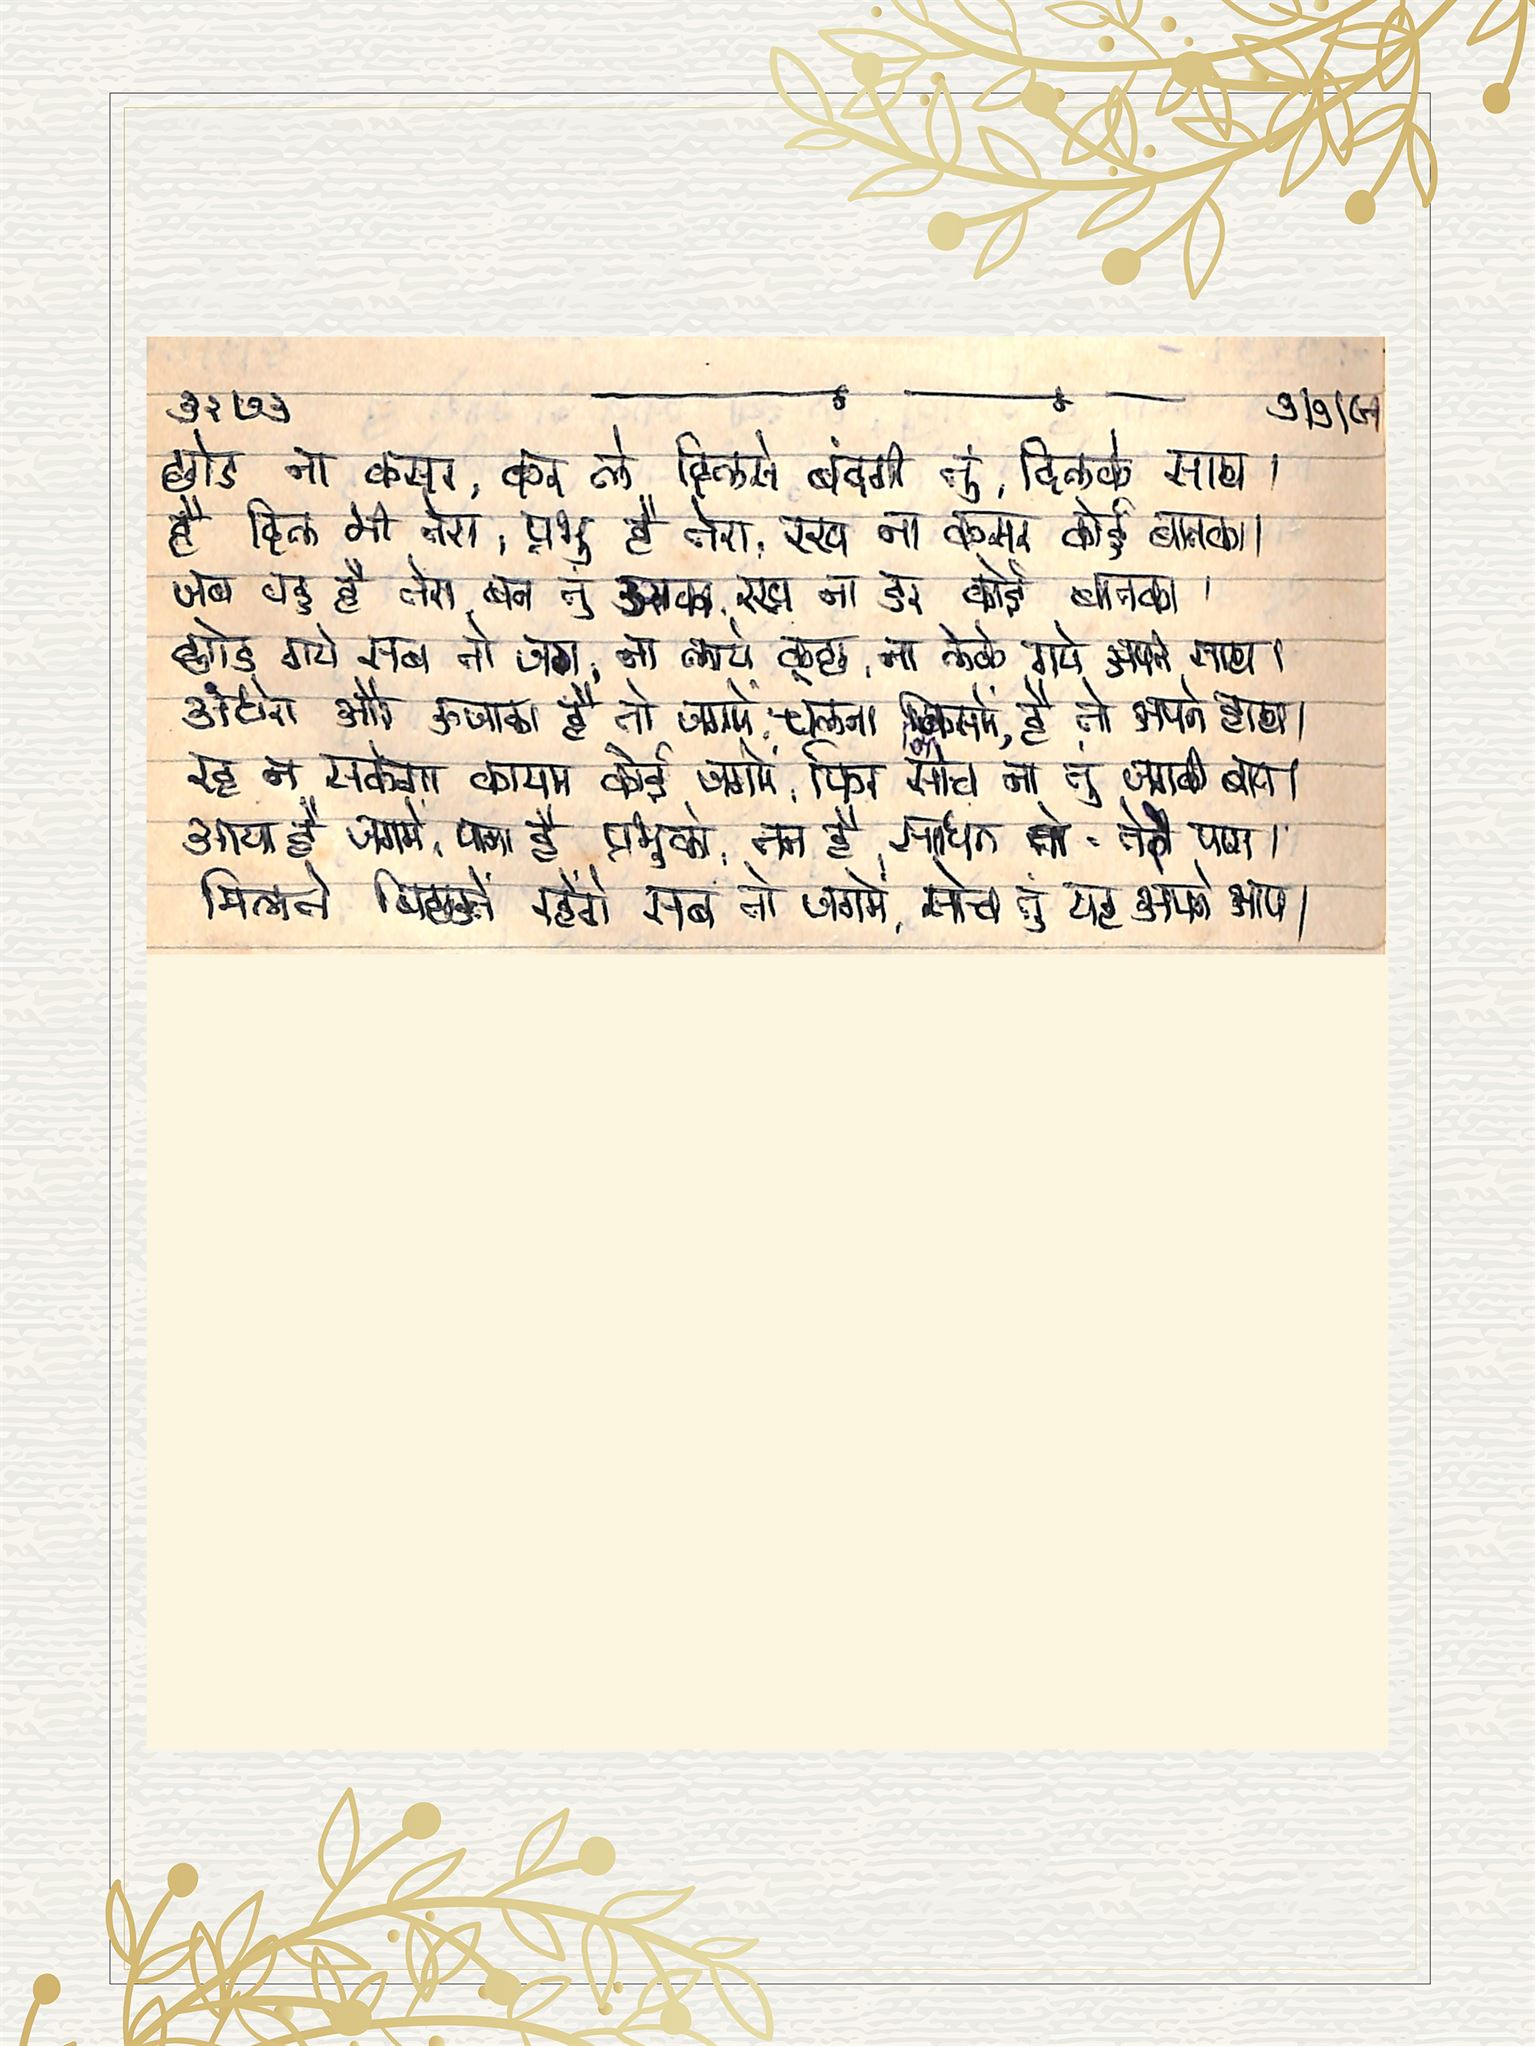 छोड ना कसर, कर ले दिलसे बंदगी तुं, दिलके साथ ।
है दिल भी तेरा, प्रभु है तेरा, रख ना कसर कोई बातका।
जब वह है तेरा, बन तुं उसका, रख ना डर कोई बातका ।
छोड गये सब तो जग, ना लाये कुछ, ना लेके गये अपने साथ ।
अंधेरा और ऊजाला है तो जगमें, चलना किसमें, है तो अपने हाथ।
रह न सकेगा कायम कोई जगमें, फिर सोच ना तुं जगकी बात।
आया है जगमें, पाना है प्रभुको, तन है साधन तो तेरे पास।
मिलते बिछुडते रहेंगे सब तो जगमें, सोच तुं यह अपने आप।